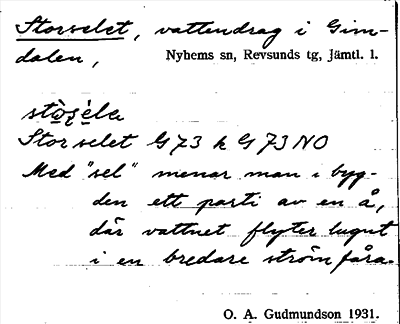 Storselet, vattendrag i Gim-
dalen,
Nyhems sn, Revsunds tg, Jämtl. l.
Storselet G73 k G73 NO
Med "sel" menar man i byg-
den ett parti av en å,
där vattnet flyter lugnt
i en bredare strömfåra.
O. A. Gudmundson 1931.